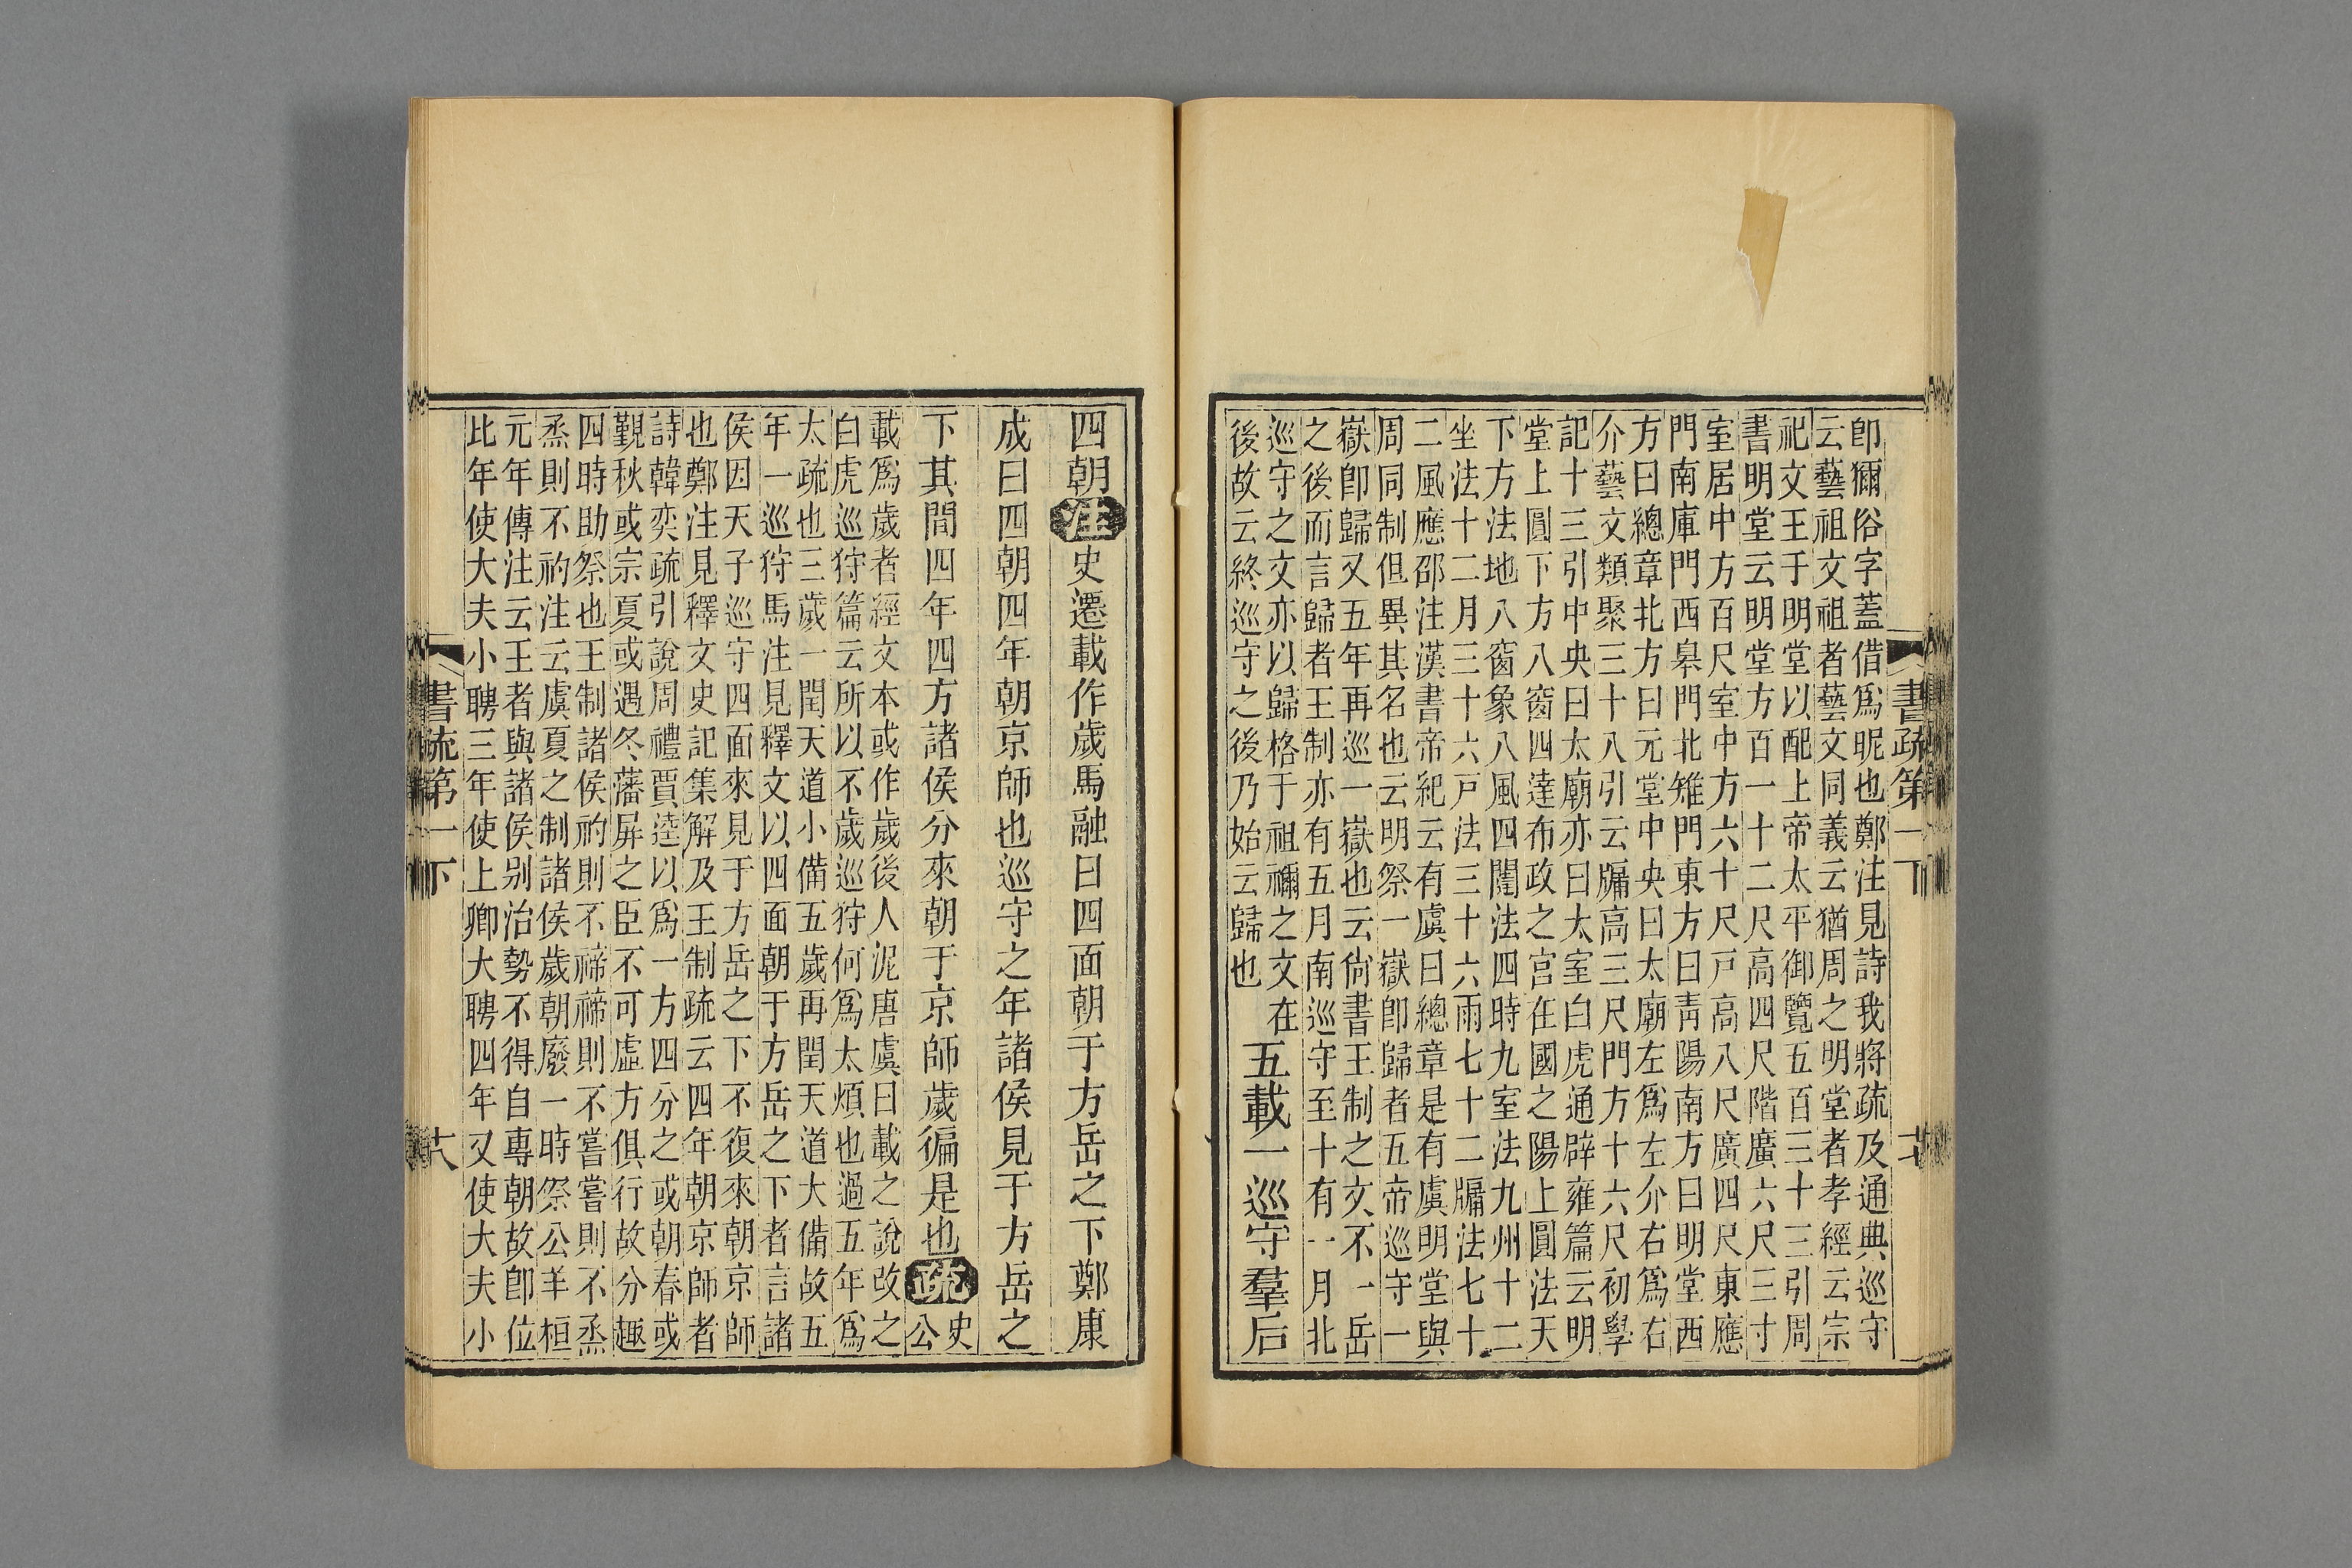 卽禰俗字蓋借爲昵也鄭注見詩我將疏及通典巡守
云藝祖文祖者藝文同義云猶周之明堂者孝經云宗
祀文王于明堂以配上帝太平御覽五百三十三引周
書明堂云明堂方百一十二尺高四尺階廣六尺三寸
室居中方百尺室中方六十尺戸高八尺廣四尺東應
門南庫門西皋門北雉門東方曰靑陽南方曰明堂西
方曰總章北方曰元堂中央曰太廟左爲左介右爲右
介藝文類聚三十八引云牖高三尺門方十六尺初學
記十三引中央曰太廟亦曰太室白虎通辟雍篇云明
堂上圓下方八窗四達布政之宮在國之陽上圓法天
下方法地八窗象八風四闥法四時九室法九州十二
坐法十二月三十六戸法三十六雨七十二牖法七十
二風應邵注漢書帝紀云有虞曰總章是有虞明堂與
周同制但異其名也云明祭一嶽卽歸者五帝巡守一
嶽卽歸又五年再巡一嶽也云尙書王制之文不一岳
之後而言歸者王制亦有五月南巡守至十有一月北
巡守之文亦以歸格于祖禰之文在
後故云終巡守之後乃始云歸也
五載一巡守羣后
書疏第一下
十七
四朝注史遷載作歲馬融曰四面朝于方岳之下鄭康
成曰四朝四年朝京師也巡守之年諸侯見于方岳之
下其閒四年四方諸侯分來朝于京師歲徧是也疏史
公
載爲歲者經文本或作歲後人泥唐虞曰載之說改之
白虎巡狩篇云所以不歲巡狩何爲太煩也過五年爲
太疏也三歲一閏天道小備五歲再閏天道大備故五
年一巡狩馬注見釋文以四面朝于方岳之下者言諸
侯因天子巡守四面來見于方岳之下不復來朝京師
也鄭注見釋文史記集解及王制疏云四年朝京師者
詩韓奕疏引說周禮賈逵以爲一方四分之或朝春或
覲秋或宗夏或遇冬藩屏之臣不可虛方俱行故分趣
四時助祭也王制諸侯礿則不禘禘則不嘗嘗則不烝
烝則不礿注云虞夏之制諸侯歲朝廢一時祭公羊桓
元年傳注云王者與諸侯别治勢不得自專朝故卽位
比年使大夫小聘三年使上卿大聘四年又使大夫小
書疏第一下
十八